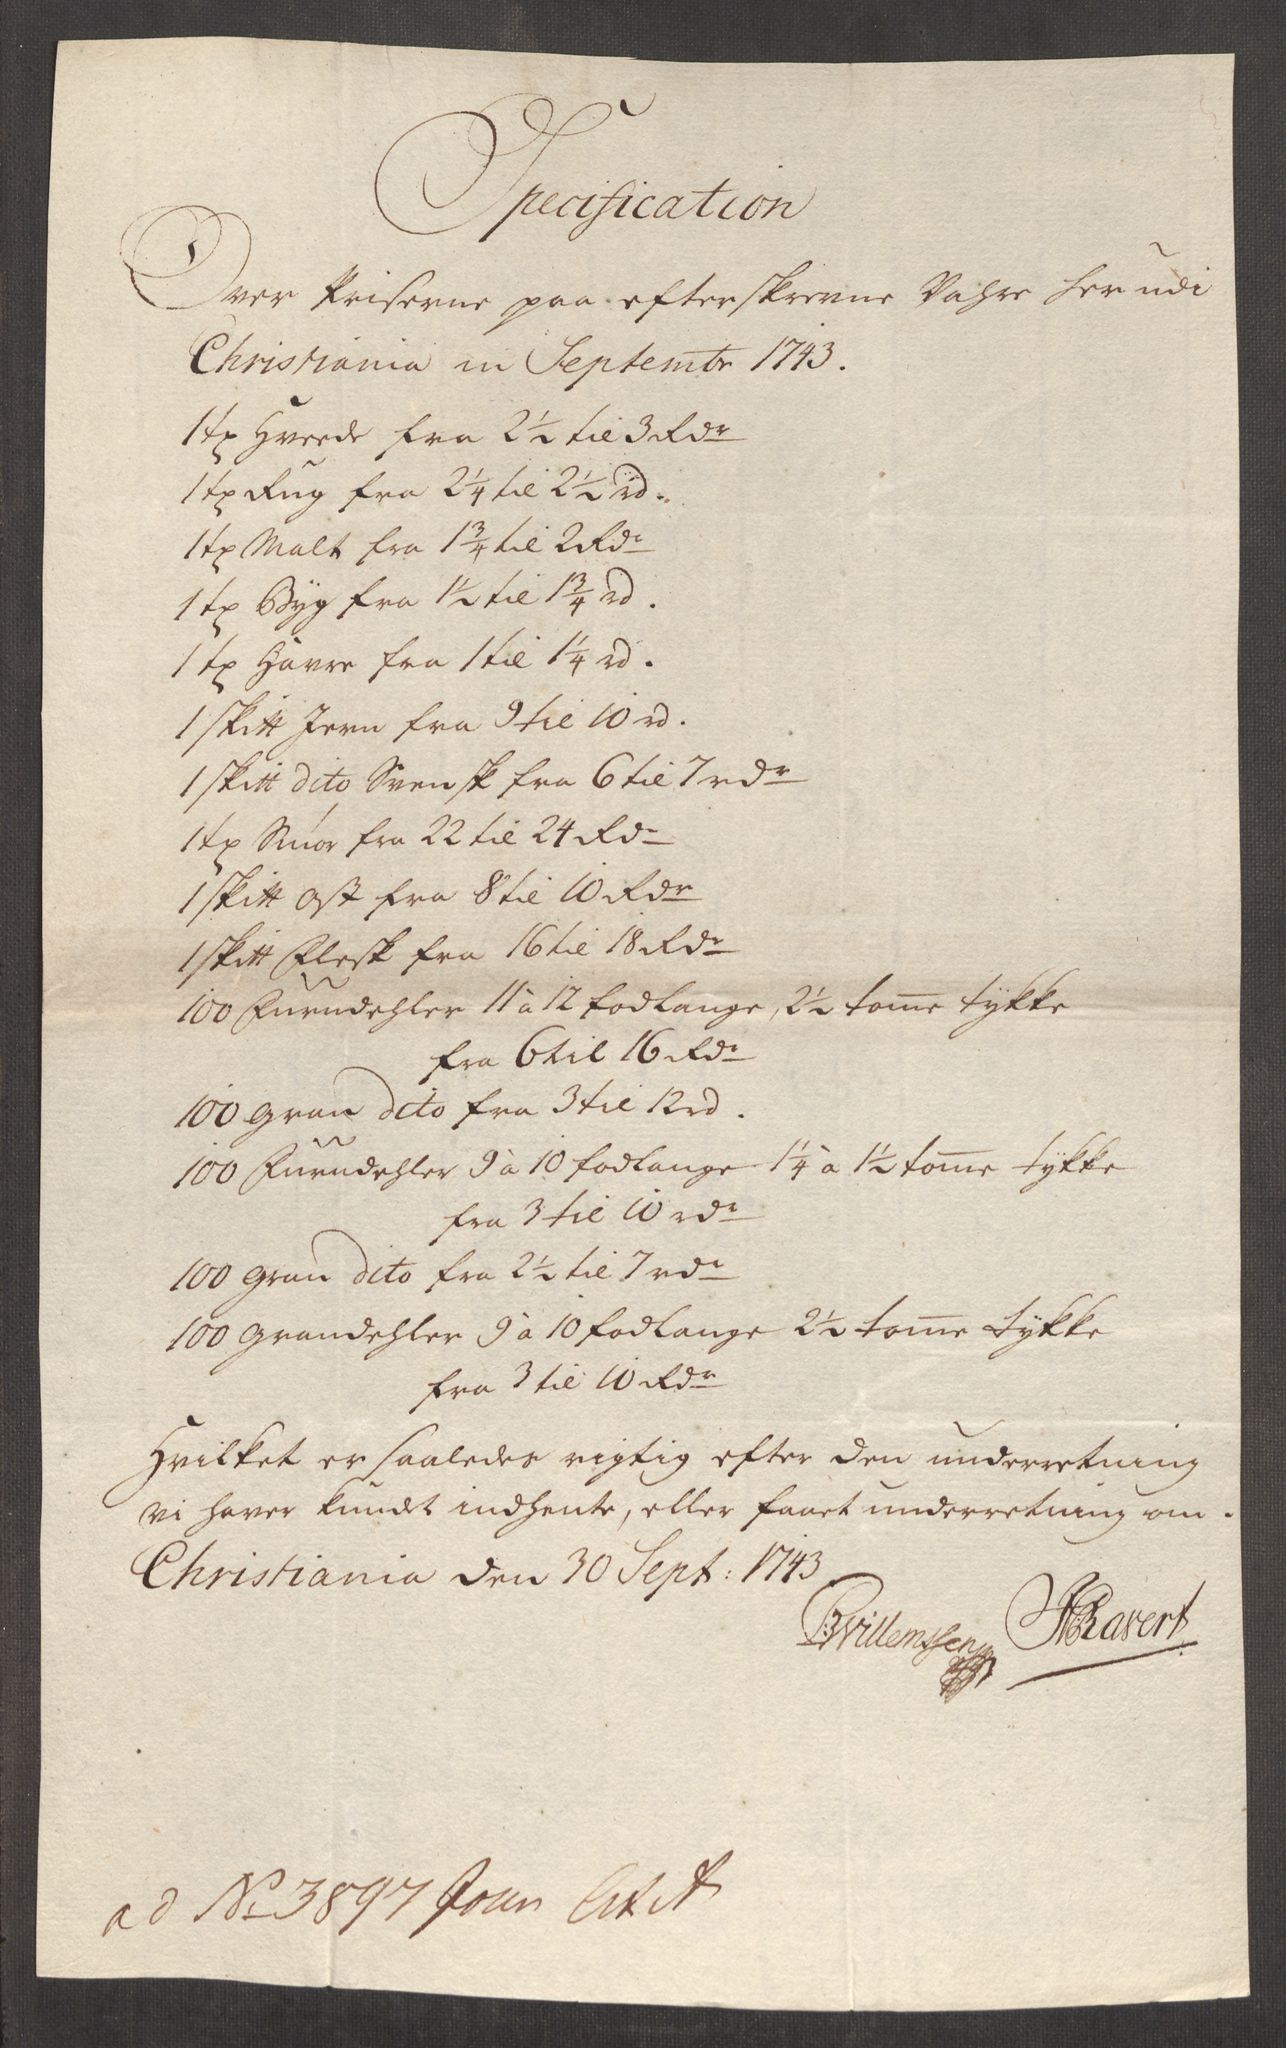 Specification
Over Priserne paa efterskrevne Vahre her udi
Christiania in Septembr 1743.
1 tø Hvede fra 2½ til 3 Rdr
1 tø Rug fra 2¼ til 2½ rd.
1 tø Malt fra 1¾ til 2 Rdr
1 tø Byg fra 1½ til 1¾ rd.
1 tø Havre fra 1 til 1¼ rd.
1 skitt Jern fra 9 til 10 rd.
1 skitt dito Svensk fra 6 til 7 rdr
1 tø Smør fra 22 til 24 Rdr
1 skitt Ost fra 8 til 10 Rdr
1 skitt Flesk fra 16 til 18 Rdr
100 Furudehler 11 à 12 fod lange, 2½ tome tykke
fra 6 til 16 Rdr
100 gran dito fra 3 til 12 rd.
100 Furudehler 9 à 10 fod lange 1¼ à 1½ tome tykke
fra 3 til 10 rdr
100 gran dito fra 2½ til 7 rdr
100 grandehler 9 à 10 fod lange 2½ tome tykke
fra 3 til 10 Rdr
Hvilket er saaledes rigtig efter den underretning
vi haver kundt indhente, eller faaet underretning om.
Christiania den 30 Sept: 1743
BWillemssen Ravert
ad No 3897 Jour Lit A